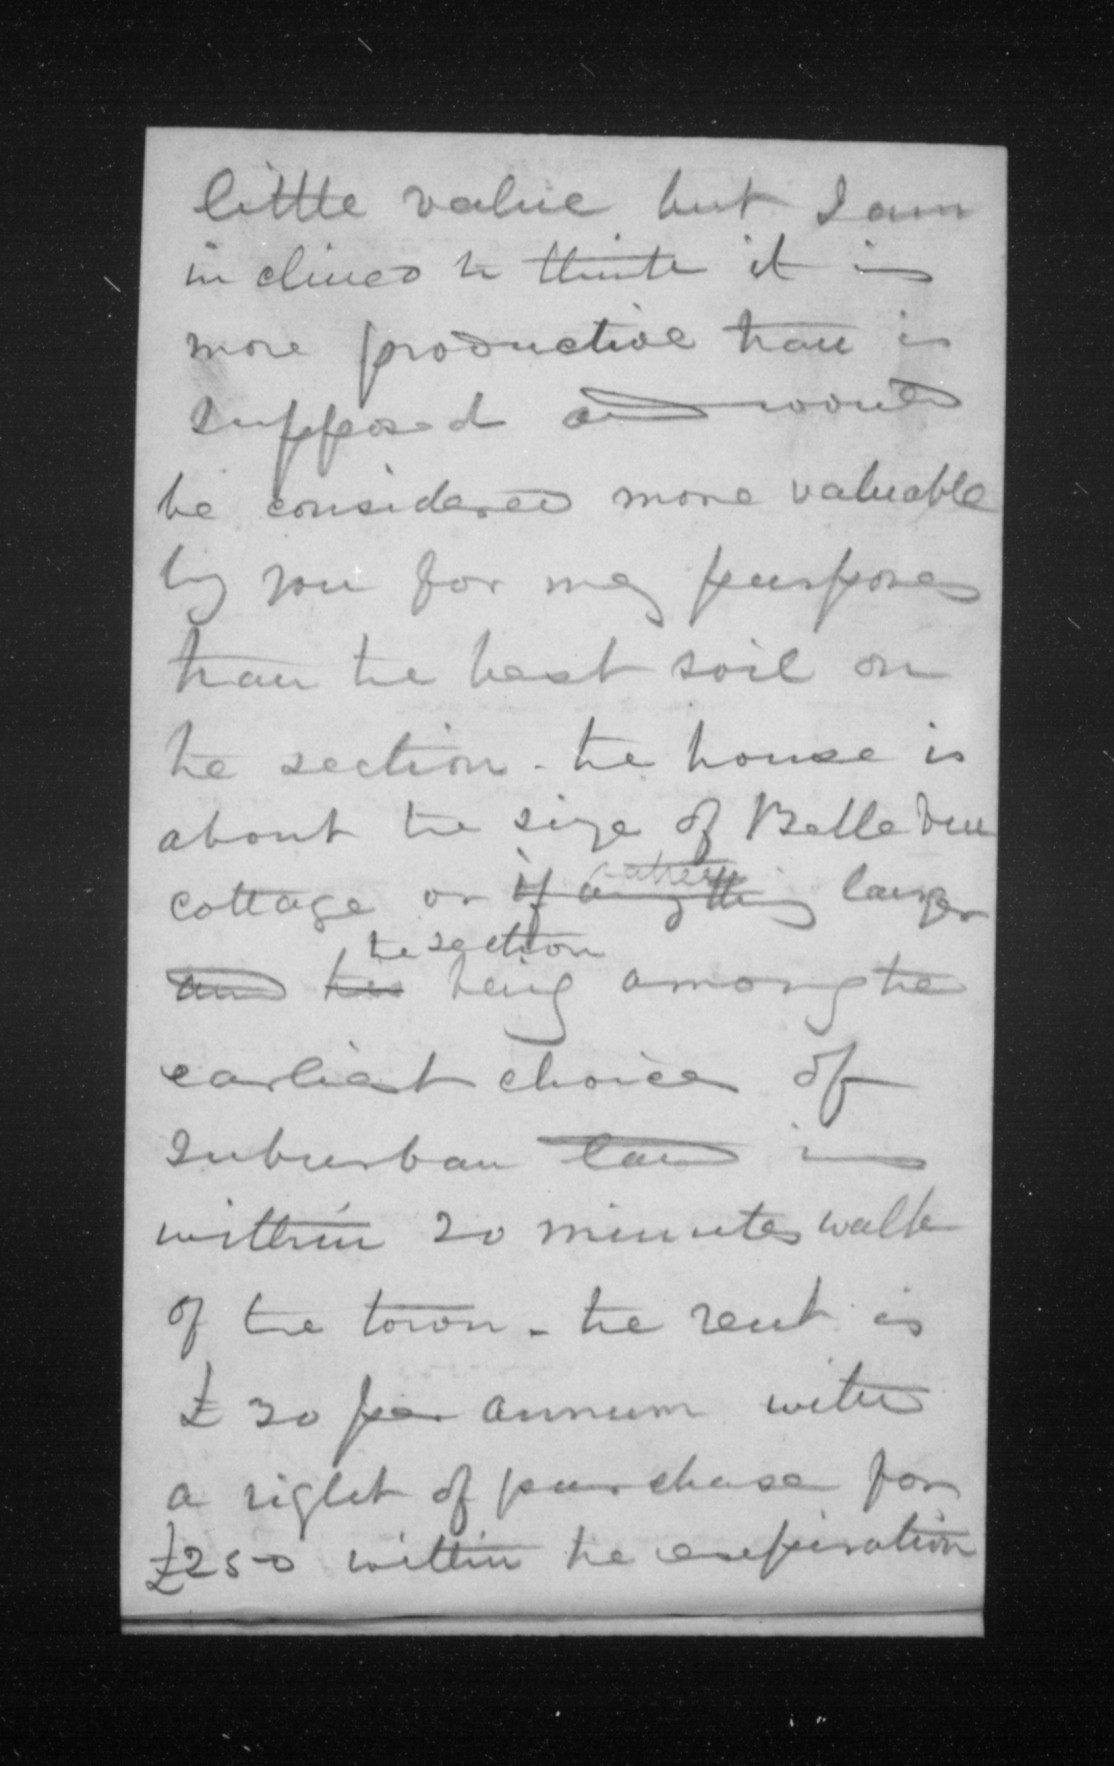 little value but I am
inclined to think it is
more productive than is
supposed and would
be considered more valuable
by you for my purposes
than the best soil on
the section - the house is
about the size of Belle Vue
cottage or if anything rather larger
and this the section being among the
earliest choices of
suburban land is
within 20 minutes walk
of the town - the rent is
£30 per annum with
a right of purchase for
£250 within the expiration